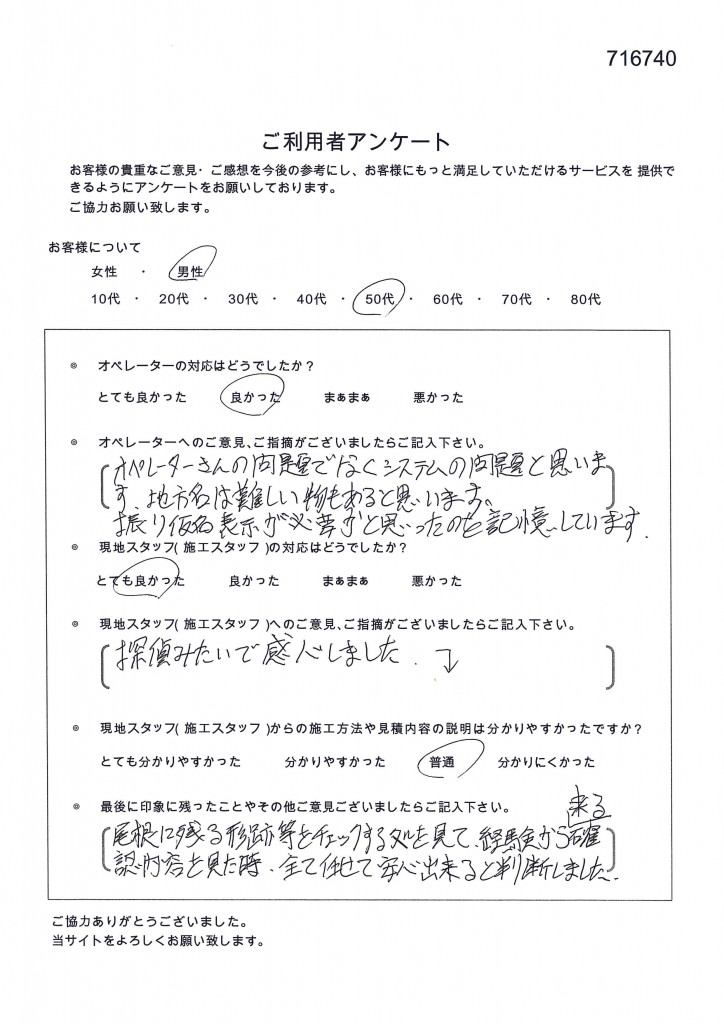 716740
ご利用者アンケート
お客様の貴重なご意見・ご感想を今後の参考にし、お客様にもっと満足していただけるサービスを 提供で
きるようにアンケートをお願いしております。
ご協力お願い致します。
お客様について
女性 ・ 男性
10代 ・ 20代 ・ 30代 ・ 40代 ・ 50代 ・ 60代 ・ 70代 ・ 80代
◎ オペレーターの対応はどうでしたか？
とても良かった 良かった まぁまぁ 悪かった
◎ オペレーターへのご意見、ご指摘がございましたらご記入下さい。
オペレーターさんの問題でなくシステムの問題と思いま
す、地方名は難しい物もあると思います。
振り仮名表示が必要かと思ったのを記憶しています.
◎ 現地スタッフ( 施工スタッフ )の対応はどうでしたか？
とても良かった 良かった まぁまぁ 悪かった
◎ 現地スタッフ( 施工スタッフ )へのご意見、ご指摘がございましたらご記入下さい。
探偵みたいで感心しました. ↓
◎ 現地スタッフ( 施工スタッフ )からの施工方法や見積内容の説明は分かりやすかったですか？
とても分かりやすかった 分かりやすかった 普通 分かりにくかった
◎ 最後に印象に残ったことやその他ご意見ございましたらご記入下さい。
来る
尾根に残る形跡等をチェックする を見て、経験から 確
認内容を見た時、全て任せて安心出来ると判断しました.
ご協力ありがとうございました。
当サイトをよろしくお願い致します。